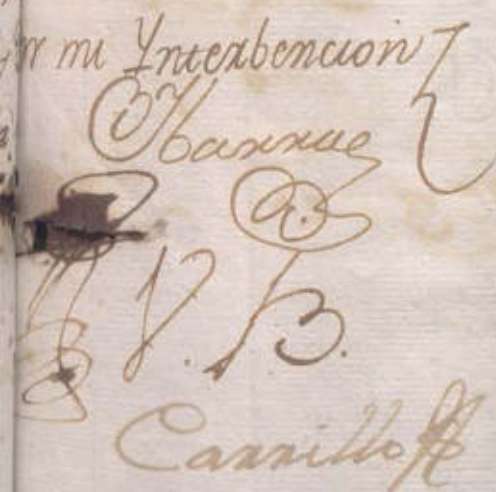 mi Ynterbencion
Ibarra
V. B.
Carrillo